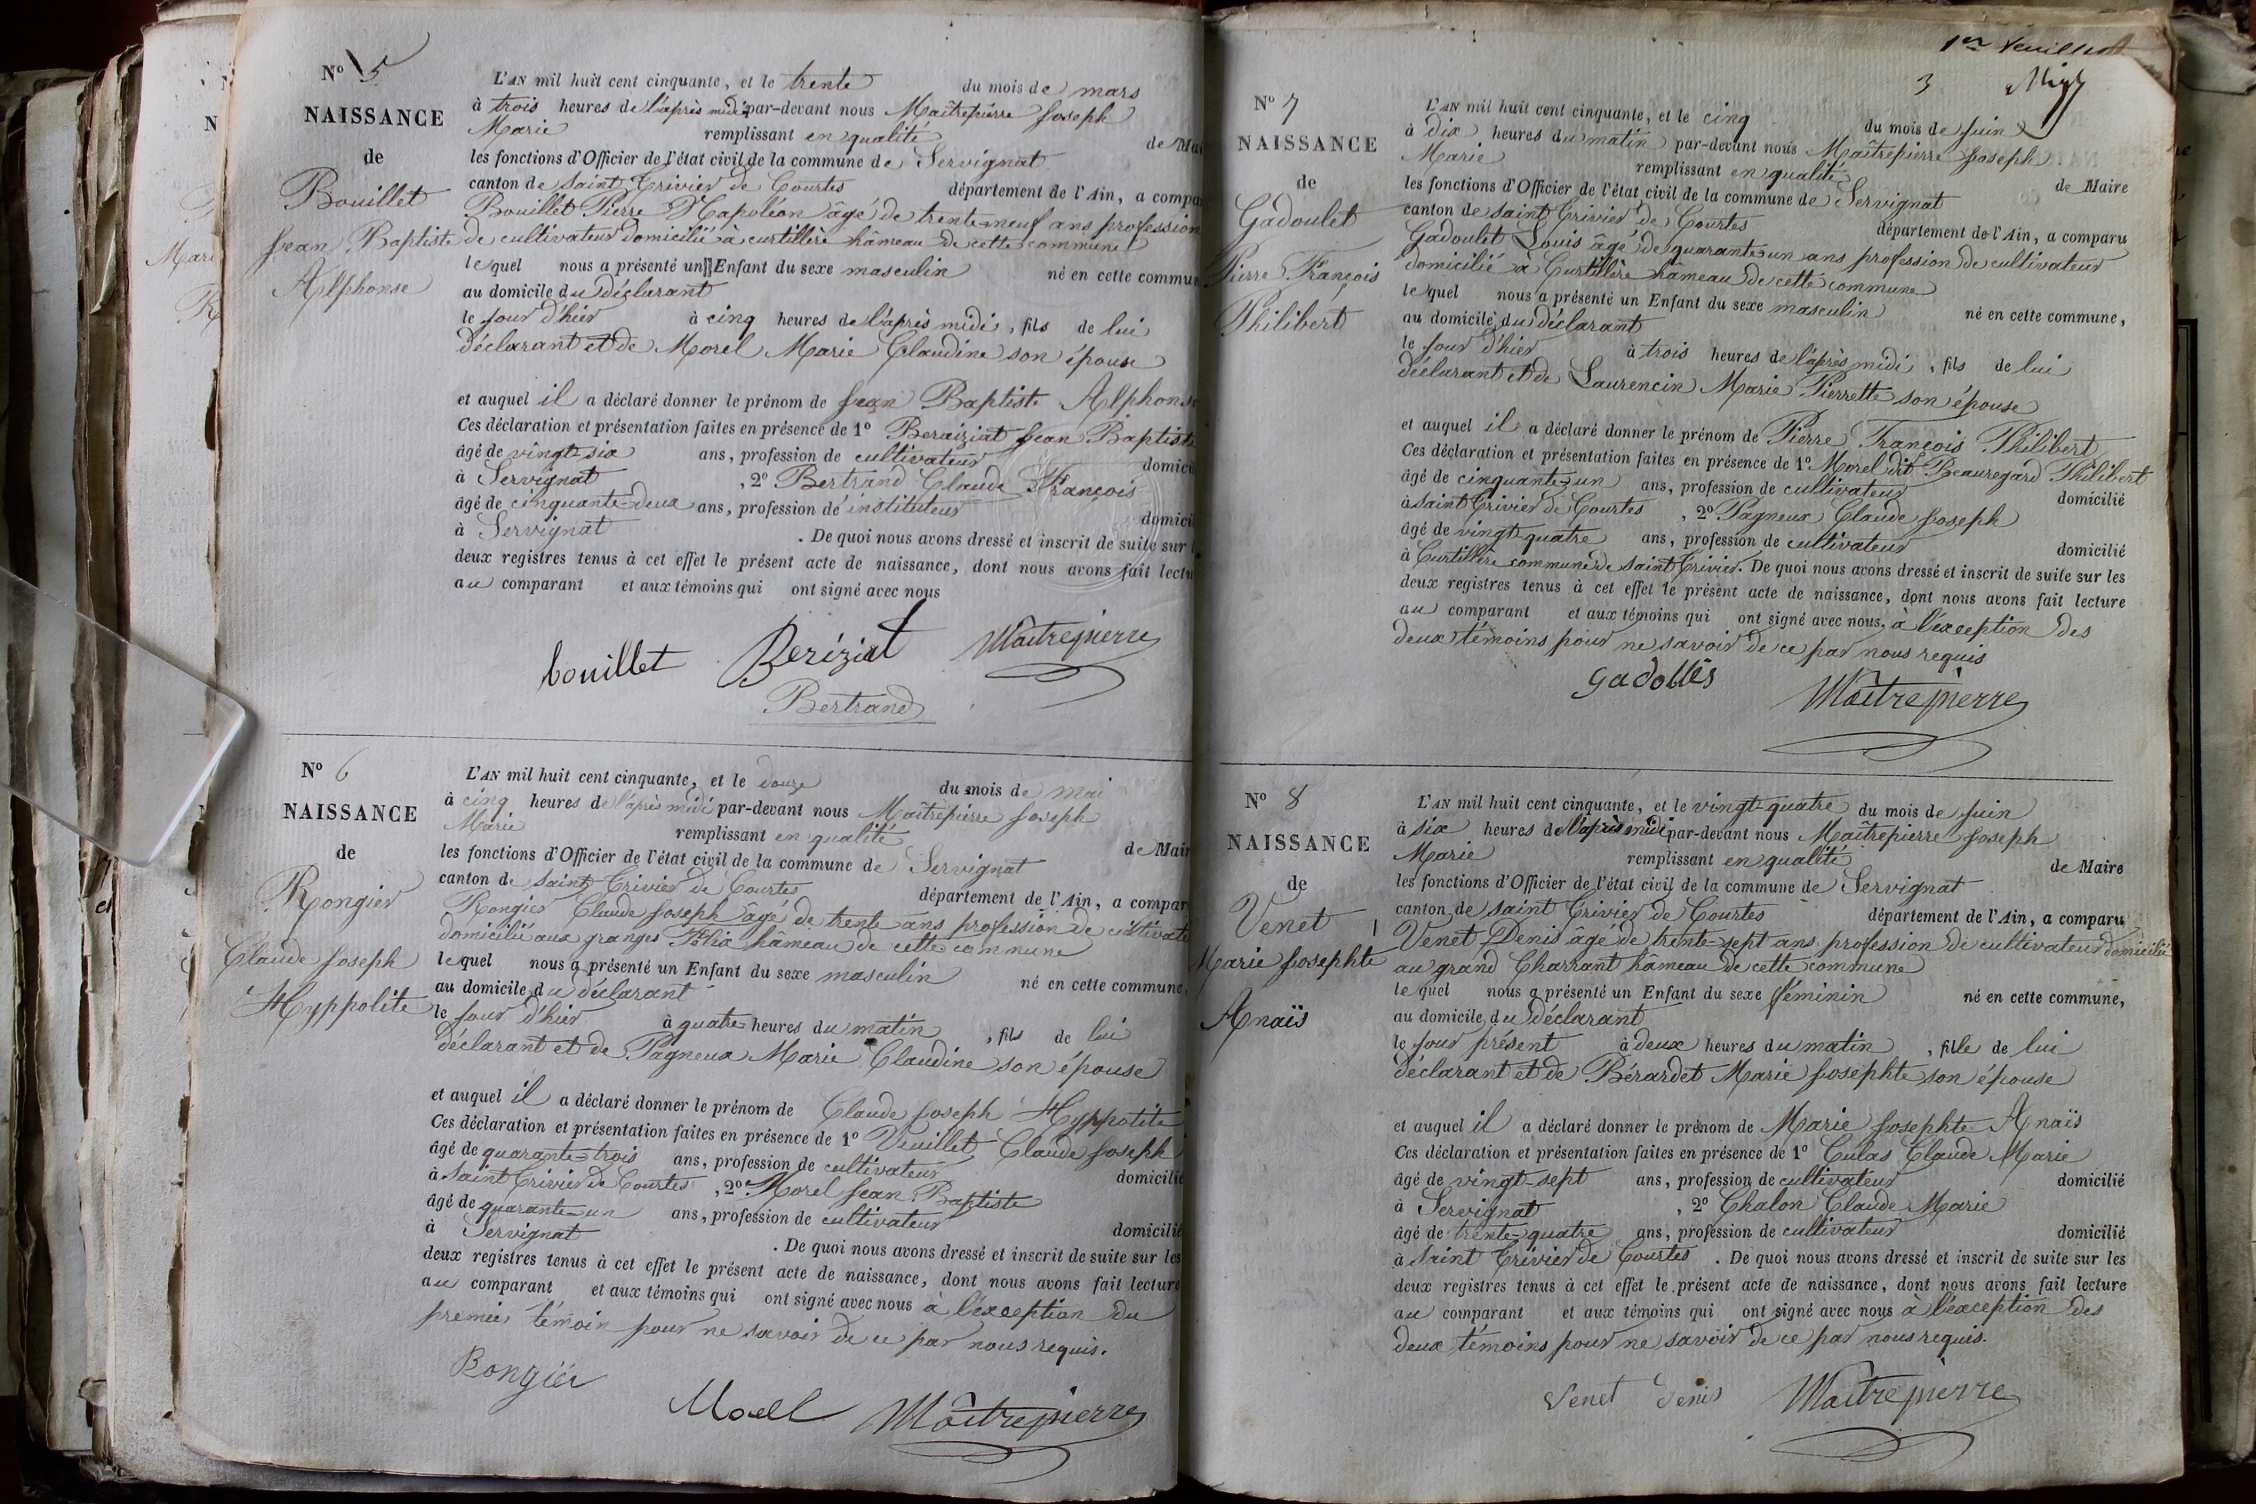 Nº 5
NAISSANCE
de
Bouillet
Jean Baptiste
Alphonse
L'AN mil huit cent cinquante, et le trente du mois de mars
à trois heures de l'après midi par-devant nous Maîtrepierre Joseph
Marie remplissant en qualité de Mai
les fonctions d'Officier de l'état civil de la commune de Servignat
canton de Saint Trivier de Courtes département de l'Ain, a compa
Bouillet Pierre Napoléon âgé de trente-neuf ans profession
de cultivateur domicilié à curtillère hâmeau de cette commune
lequel nous a présenté un Enfant du sexe masculin né en cette commun
au domicile du déclarant
le jour d'hier à cinq heures de l'après midi, fils de lui
déclarant et de Morel Marie Claudine son épouse
et auquel il a déclaré donner le prénom de Jean Baptiste Alphonse
Ces déclaration et présentation faites en présence de 1º Beraiziat Jean Baptiste
âgé de vingt-six ans, profession de cultivateur domici
à Servignat, 2º Bertrand Claude François
âgé de cinquante-deux ans, profession de instituteur domici
à Servignat. De quoi nous avons dressé et inscrit de suite sur l
deux registres tenus à cet effet le présent acte de naissance, dont nous avons fait lectu
au comparant et aux témoins qui ont signé avec nous
bouillet Bériziat Maitrepierre
Bertrand
Nº 6
NAISSANCE
de
Rongier
Claude Joseph
Hyppolite
L'AN mil huit cent cinquante, et le douze du mois de mai
à cinq heures de l'après midi par-devant nous Maîtrepierre Joseph
Marie remplissant en qualité de Mair
les fonctions d'Officier de l'état civil de la commune de Servignat
canton de Saint Trivier de Courtes département de l'Ain, a compar
Rongier Claude Joseph âgé de trente ans profession de cultivate
domicilié aux granges hâmeau de cette commune
lequel nous a présenté un Enfant du sexe masculin né en cette commune,
au domicile du déclarant
le jour d'hier à quatre heures du matin, fils de lui
déclarant et de Pagneux Marie Claudine son épouse
et auquel il a déclaré donner le prénom de Claude Joseph Hyppolite
Ces déclaration et présentation faites en présence de 1º Veuillet Claude Joseph
âgé de quarante-trois ans, profession de cultivateur domicilié
à Saint Trivier de Courtes, 2º Morel Jean Baptiste
âgé de quarante-un ans, profession de cultivateur domicilié
à Servignat. De quoi nous avons dressé et inscrit de suite sur les
deux registres tenus à cet effet le présent acte de naissance, dont nous avons fait lecture
au comparant et aux témoins qui ont signé avec nous à l'exception du
premier témoin pour ne savoir de ce par nous requis.
Rongier
Morel Maîtrepierre
1er feuillet
3
Nº 7
NAISSANCE
de
Gadoulet
Pierre François
Philibert
L'AN mil huit cent cinquante, et le cinq du mois de juin
à dix heures du matin par-devant nous Maîtrepierre Joseph
Marie remplissant en qualité de Maire
les fonctions d'Officier de l'état civil de la commune de Servignat
canton de Saint Trivier de Courtes département de l'Ain, a comparu
Gadoulet Louis âgé de quarante-un ans profession de cultivateur
domicilié à Curtillère hâmeau de cette commune
lequel nous a présenté un Enfant du sexe masculin né en cette commune,
au domicile du déclarant
le jour d'hier à trois heures de l'après midi, fils de lui
déclarant et de Laurencin Marie Pierrette son épouse
et auquel il a déclaré donner le prénom de Pierre François Philibert
Ces déclaration et présentation faites en présence de 1º Morel dit Beauregard Philibert
âgé de cinquante-un ans, profession de cultivateur domicilié
à Saint Trivier de Courtes, 2º Pagneux Claude Joseph
âgé de vingt-quatre ans, profession de cultivateur domicilié
à Curtillère commune de Saint Trivier. De quoi nous avons dressé et inscrit de suite sur les
deux registres tenus à cet effet le présent acte de naissance, dont nous avons fait lecture
au comparant et aux témoins qui ont signé avec nous, à l'exception des
deux témoins pour ne savoir de ce par nous requis
Maîtrepierre
Nº 8
NAISSANCE
de
Venet
Marie Josephte
Anaïs
L'AN mil huit cent cinquante, et le vingt-quatre du mois de juin
à six heures de l'après midi par-devant nous Maîtrepierre Joseph
Marie remplissant en qualité de Maire
les fonctions d'Officier de l'état civil de la commune de Servignat
canton de Saint Trivier de Courtes département de l'Ain, a comparu
Venet Denis âgé de trente-sept ans profession de cultivateur domicilié
au grand Charrant hâmeau de cette commune
lequel nous a présenté un Enfant du sexe féminin né en cette commune,
au domicile du déclarant
le jour présent à deux heures du matin, fille de lui
déclarant et de Bérardet Marie Josephte son épouse
et auquel il a déclaré donner le prénom de Marie Josephte Anaïs
Ces déclaration et présentation faites en présence de 1º Culas Claude Marie
âgé de vingt-sept ans, profession de cultivateur domicilié
à Servignat, 2º Chalon Claude Marie
âgé de trente-quatre ans, profession de cultivateur domicilié
à Saint Trivier de Courtes. De quoi nous avons dressé et inscrit de suite sur les
deux registres tenus à cet effet le présent acte de naissance, dont nous avons fait lecture
au comparant et aux témoins qui ont signé avec nous à l'exception des
deux témoins pour ne savoir de ce par nous requis.
Venet Denis Maîtrepierre